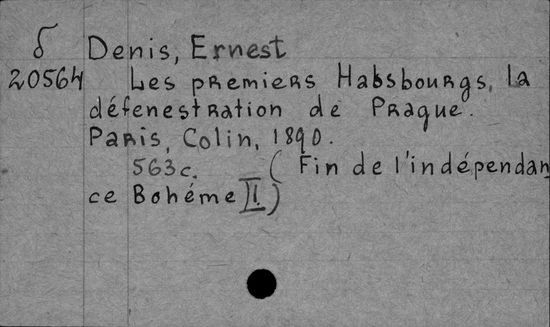 δ Denis, Ernest
20564 Les premiers Habsbourgs, la
défenestration de Prague.
Paris, Colin, 1890.
563c. _ ( Fin de l'indépendan
ce Bohéme II.)